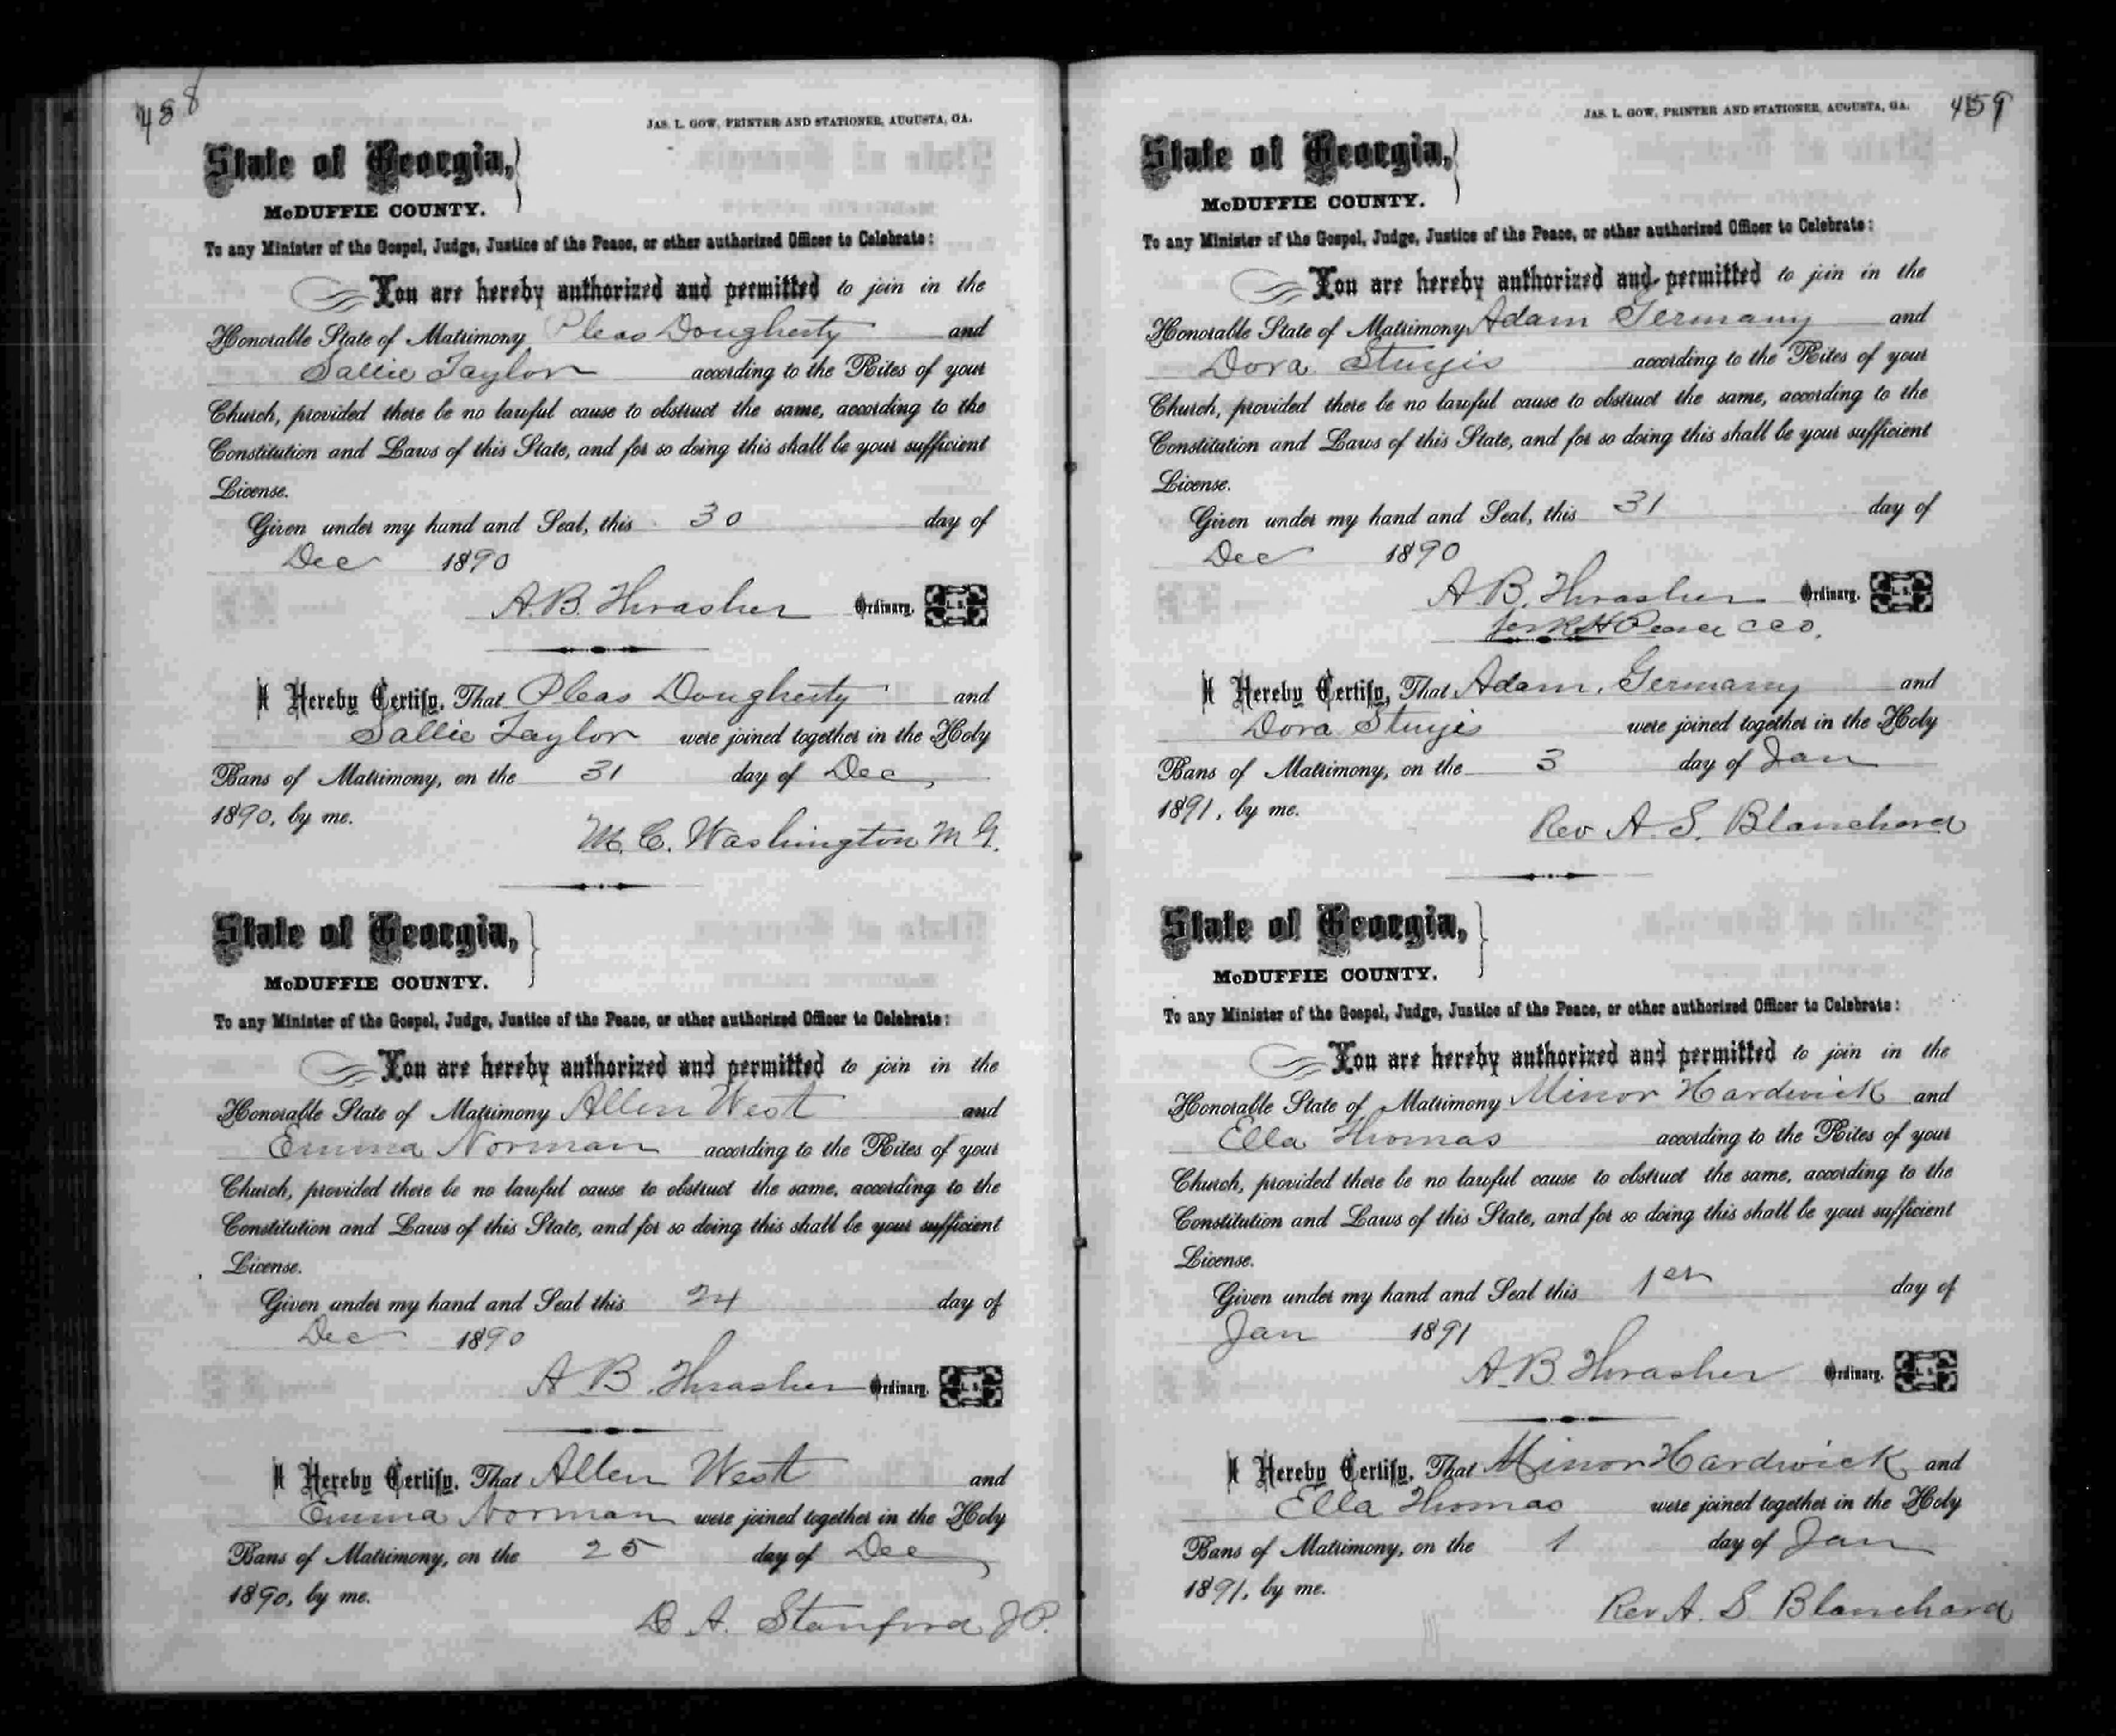 458
JAS. L. GOW, PRINTER AND STATIONER, AUGUSTA, GA.
State of Georgia,
McDUFFIE COUNTY.
To any Minister of the Gospel, Judge, Justice of the Peace, or other authorized Officer to Celebrate:
You are hereby authorized and permitted to join in the
Honorable State of Matrimony Pleas Dougherty and
Sallie Taylor according to the Rites of your
Church, provided there be no lawful cause to obstruct the same, according to the
Constitution and Laws of this State, and for so doing this shall be your sufficient
License.
Given under my hand and Seal, this 30 day of
Dec 1890
A. B. Thrasher Ordinary. L. S.
I Hereby Certify, That Pleas Dougherty and
Sallie Taylor were joined together in the Holy
Bans of Matrimony, on the 31 day of Dec,
1890, by me.
M. C. Washington M G.
State of Georgia,
McDUFFIE COUNTY.
To any Minister of the Gospel, Judge, Justice of the Peace, or other authorized Officer to Celebrate:
You are hereby authorized and permitted to join in the
Honorable State of Matrimony Allen West and
Emma Norman according to the Rites of your
Church, provided there be no lawful cause to obstruct the same, according to the
Constitution and Laws of this State, and for so doing this shall be your sufficient
License.
Given under my hand and Seal this 24 day of
Dec 1890
A B. Thrasher Ordinary. L. S.
I Hereby Certify, That Allen West and
Emma Norman were joined together in the Holy
Bans of Matrimony, on the 25 day of Dec
1890, by me.
D A. Stanford J P.
JAS. L. GOW, PRINTER AND STATIONER, AUGUSTA, GA. 459
State of Georgia,
McDUFFIE COUNTY.
To any Minister of the Gospel, Judge, Justice of the Peace, or other authorized Officer to Celebrate:
You are hereby authorized and permitted to join in the
Honorable State of Matrimony Adam Germany and
Dora Sturgis according to the Rites of your
Church, provided there be no lawful cause to obstruct the same, according to the
Constitution and Laws of this State, and for so doing this shall be your sufficient
License.
Given under my hand and Seal, this 31 day of
Dec 1890
A. B. Thrasher Ordinary. L. S.
per R H Pearce C C O.
I Hereby Certify, That Adam. Germany and
Dora Sturgis were joined together in the Holy
Bans of Matrimony, on the 3 day of Jan
1891, by me.
Rev A. S. Blanchard
State of Georgia,
McDUFFIE COUNTY.
To any Minister of the Gospel, Judge, Justice of the Peace, or other authorized Officer to Celebrate:
You are hereby authorized and permitted to join in the
Honorable State of Matrimony Minor Hardwick and
Ella Thomas according to the Rites of your
Church, provided there be no lawful cause to obstruct the same, according to the
Constitution and Laws of this State, and for so doing this shall be your sufficient
License.
Given under my hand and Seal this 1st day of
Jan 1891
A. B. Thrasher Ordinary. L. S.
I Hereby Certify, That Minor Hardwick and
Ella Thomas were joined together in the Holy
Bans of Matrimony, on the 1 day of Jan
1891, by me.
Rev A. S. Blanchard